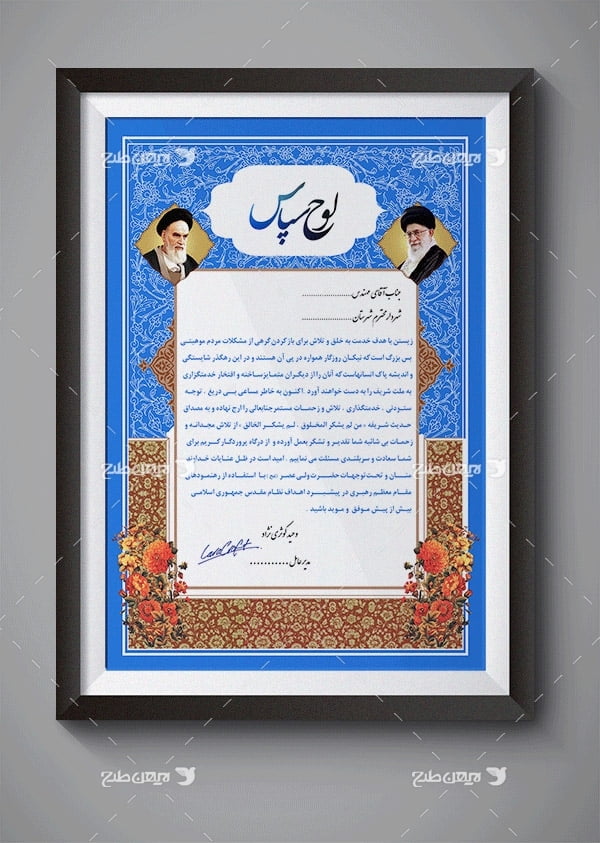 لوح سپاس
جناب آقای مهندس......................
شهردار محترم شهرستان......................
زیستن با هدف خدمت به خلق و تلاش برای باز کردن گرهی از مشکلات مردم موهبتی
بس بزرگ است که نیکان روزگار همواره در پی آن هستند و در این رهگذر شایستگی
و اندیشه پاک انسانهاست که آنان را از دیگران متمایز ساخته و افتخار خدمتگزاری
به ملت شریف را به دست خواهند آورد . اکنون به خاطر مساعی بی دریغ . توجه
ستودنی . خدمتگذاری . تلاش و زحمات مستمر جنابعالی را ارج نهاده و به مصداق
حدیث شریفه « من لم یشکر المخلوق . لم یشکر الخالق » از تلاش مجدانه و
زحمات بی شائبه شما تقدیر و تشکر بعمل آورده و از درگاه پروردگار کریم برای
شما سعادت و سربلندی مسئلت می نماییم . امید است در ظل عنایات خداوند
منان و تحت توجهات حضرت ولی عصر (عج) با استفاده از رهنمودهای
مقام معظم رهبری در پیشبرد اهداف نظام مقدس جمهوری اسلامی
بیش از پیش موفق و موید باشید .
وحید کوثری نژاد
مدیر عامل............
میهن طرح
میهن طرح
میهن طرح
میهن طرح
میهن طرح
میهن طرح